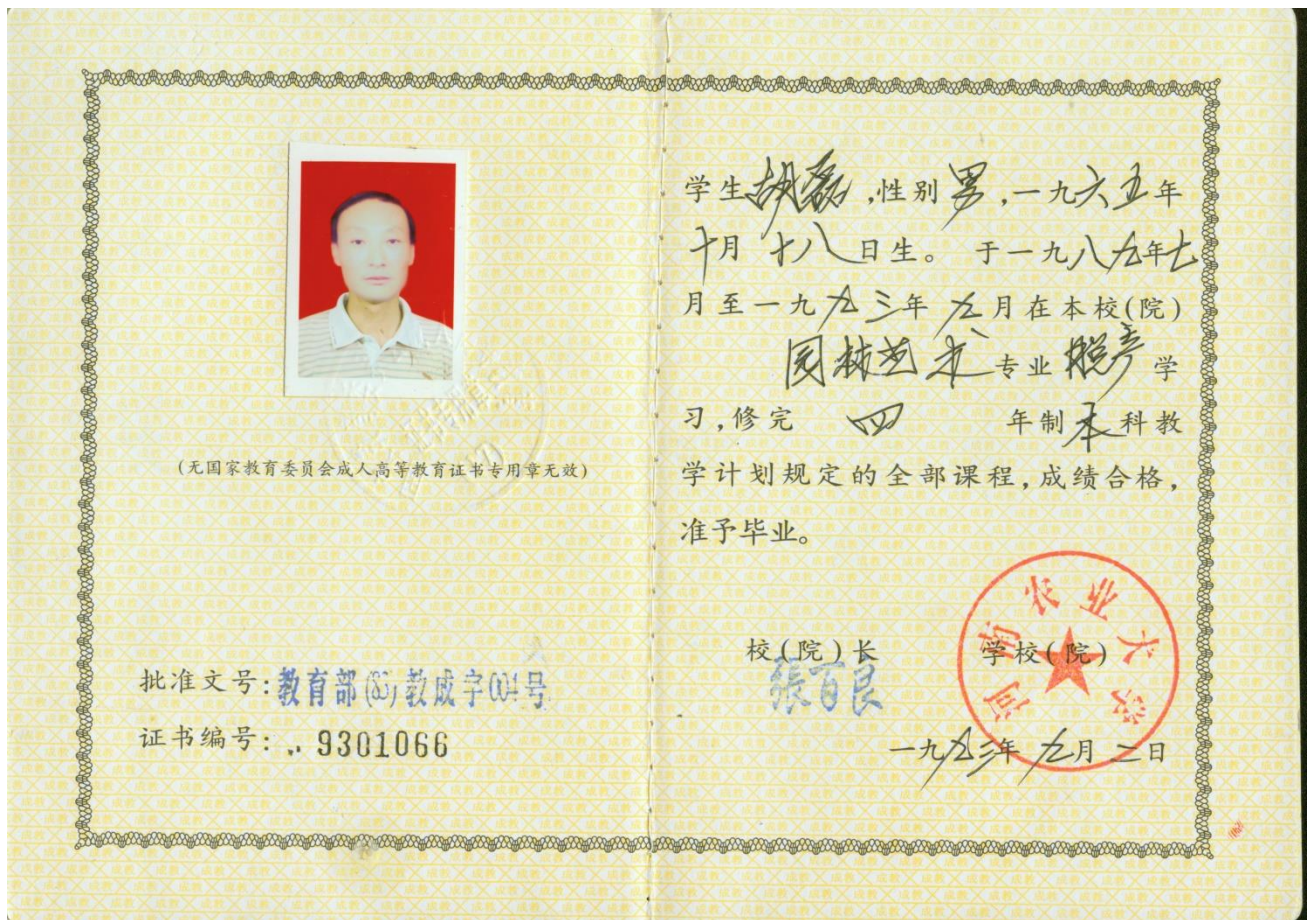 (无国家教育委员会成人高等教育证书专用章无效)
批准文号:教育部(85)教成字004号
证书编号: 9301066
学生胡磊,性别男,一九六五年
十月十八日生。 于一九八九年七
月至一九九三年九月在本校(院)
园林艺术专业脱产学
习,修完 四 年制本科教
学计划规定的全部课程,成绩合格,
准予毕业。
校(院)长 学校(院)
張百良
河南农业大学
一九九三年九月二日